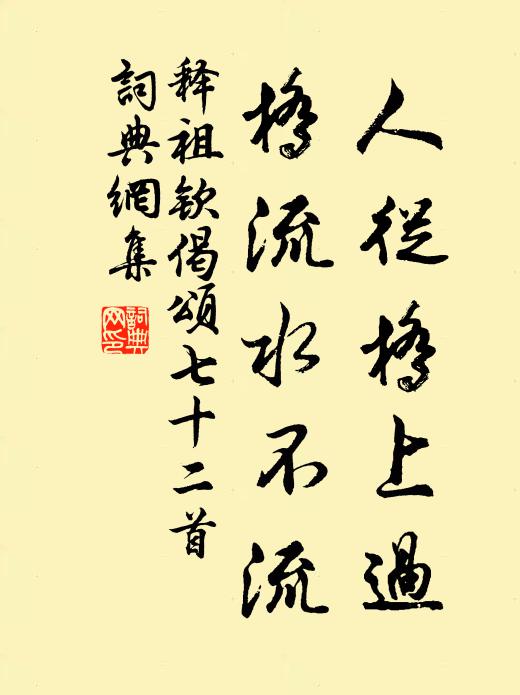 人從橋上過
橋流水不流
释祖欽偈頌七十二首
詞典網集
詞典网印